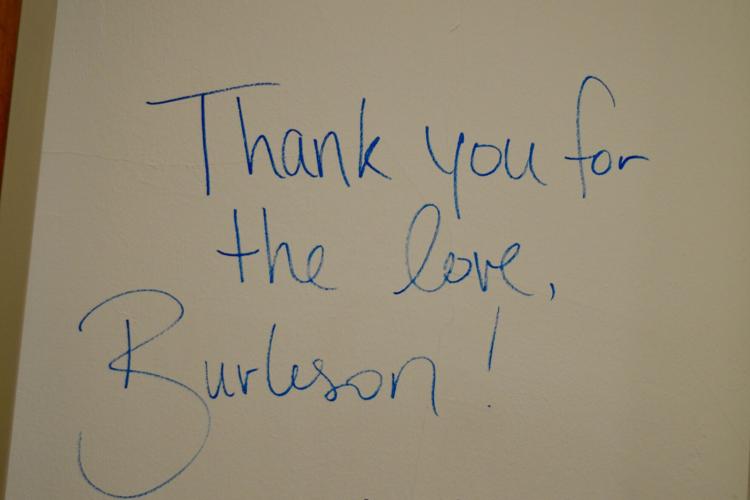 Thank you for
the love,
Burleson!